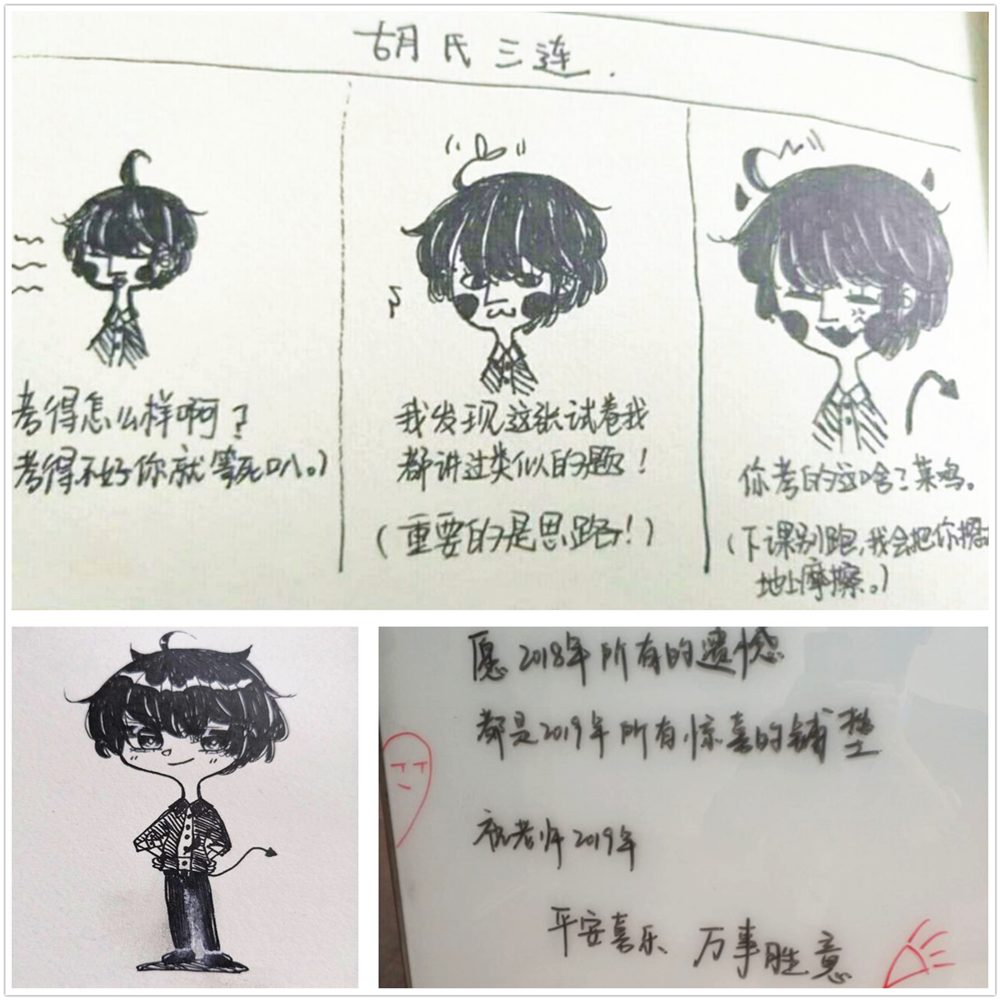 胡氏三连.
考得怎么样啊？
考得不好你就等死叭。)
我发现这张试卷我
都讲过类似的题！
(重要的是思路！)
你考的这啥？菜鸡。
(下课别跑,我会把你摁在
地上摩擦。)
愿2018年所有的遗憾
都是2019年所有惊喜的铺垫
祝老师2019年
平安喜乐 万事胜意